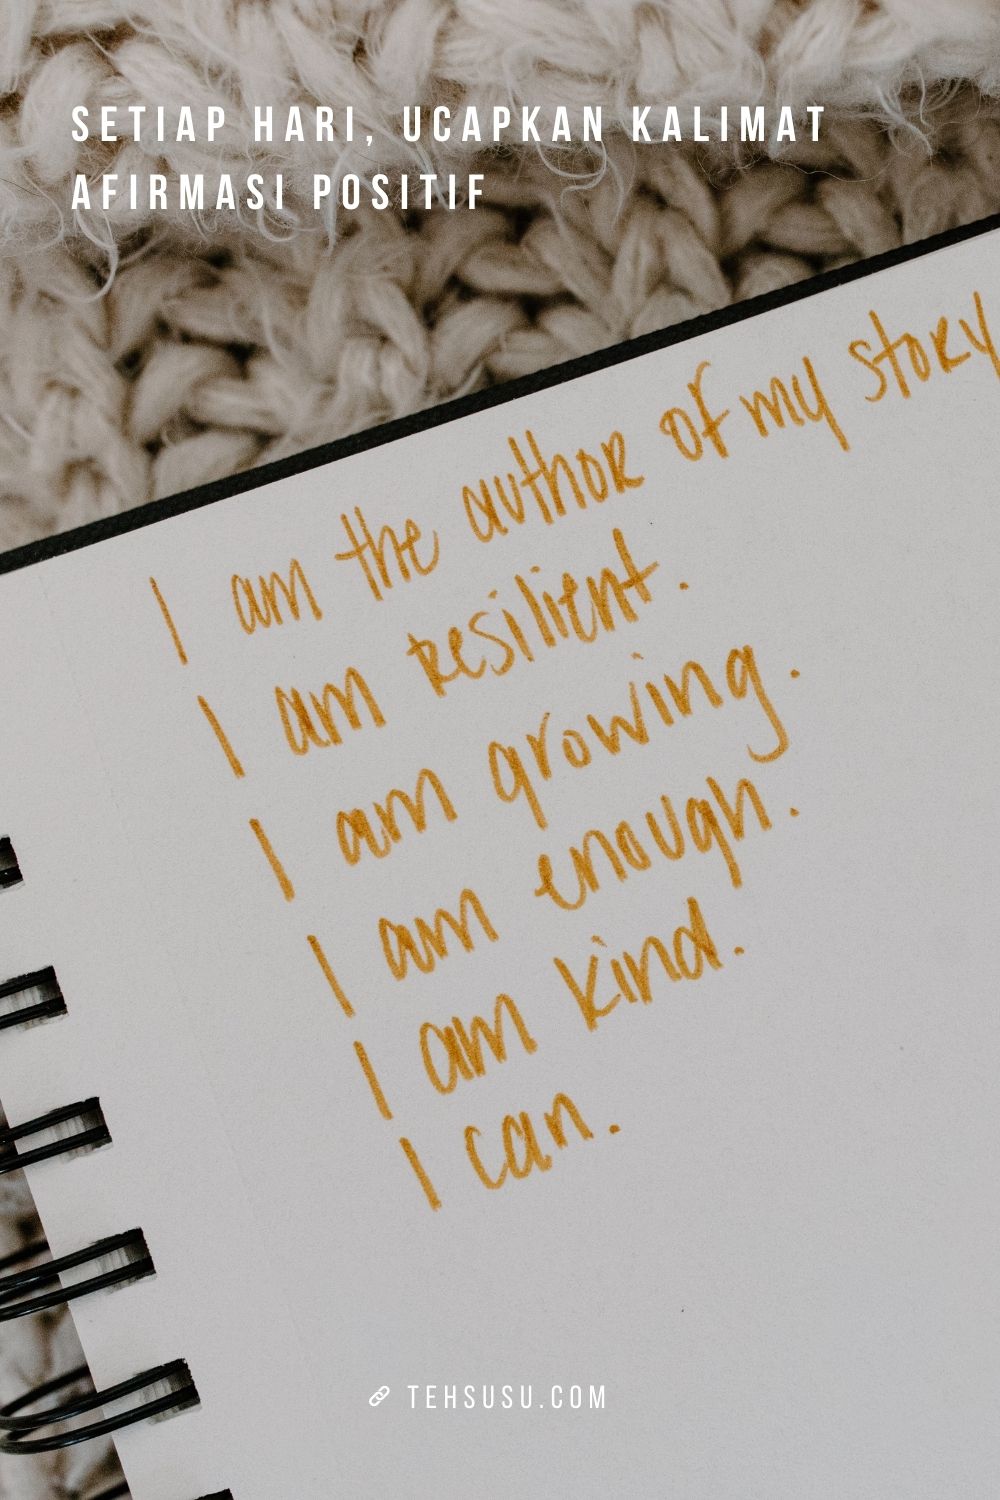 SETIAP HARI, UCAPKAN KALIMAT
AFIRMASI POSITIF
I am the author of my story
I am resilient.
I am growing.
I am enough.
I am kind.
I can.
TEHSUSU.COM